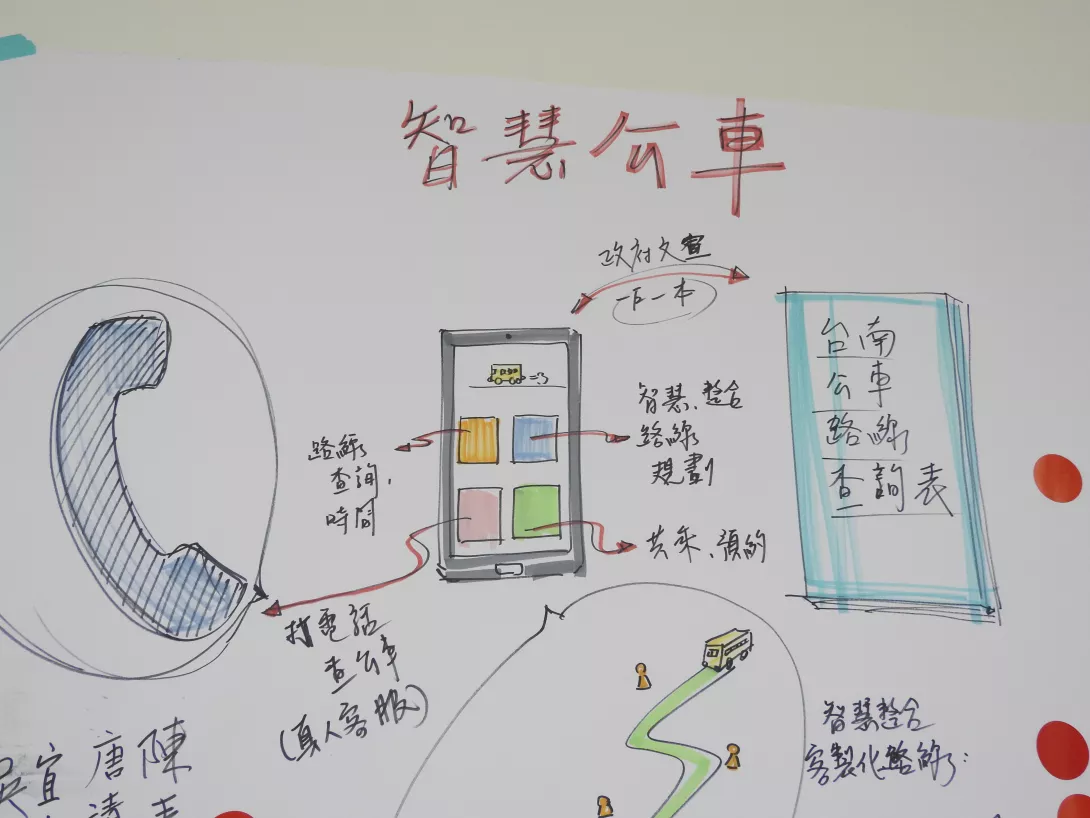 智慧公車
政府文宣
一戶一本
台南
公車
路線
查詢表
智慧、整合
路線
規劃
路線
查詢、
時間
共乘、預約
打電話
查公車
(真人客服)
智慧整合
客製化路線:
陳
唐
宜